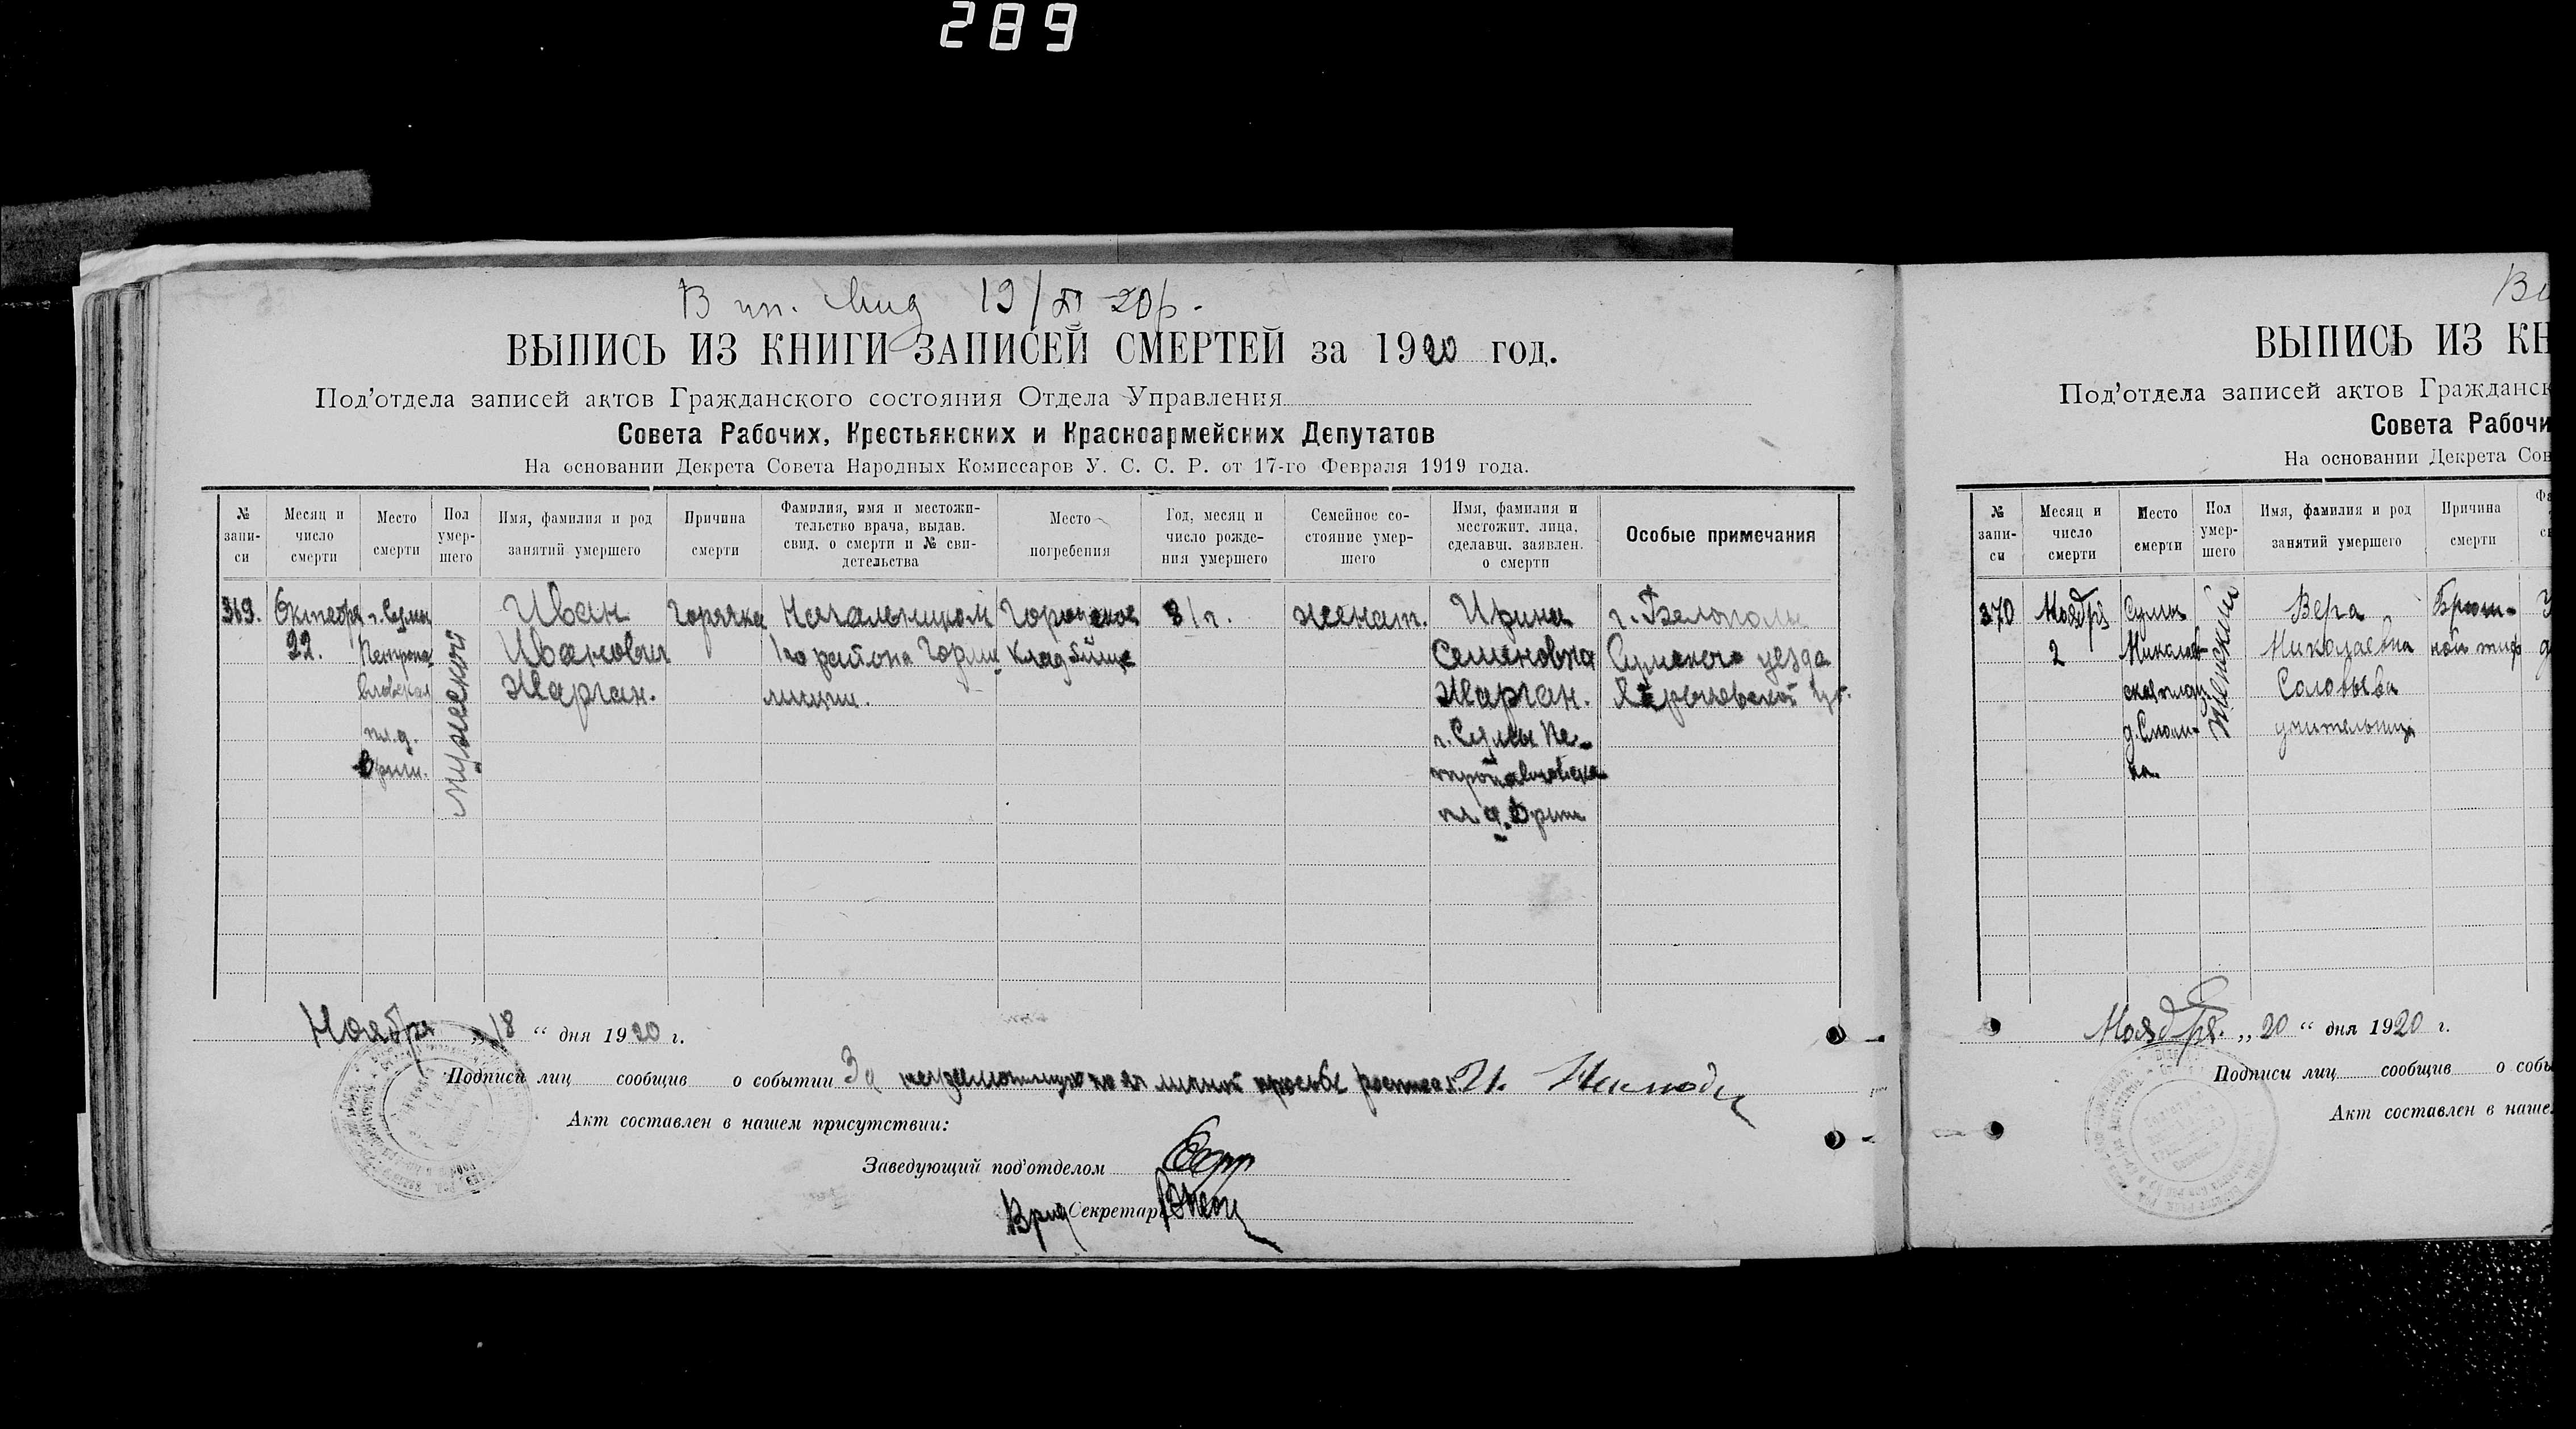 289
19/XI 20р.
ВЫПИСЬ ИЗ КНИГИ ЗАПИСЕЙ СМЕРТЕЙ за 1920 год.
Под'отдела записей актов Гражданского состояния Отдела Управления
Совета Рабочих, Крестьянских и Красноармейских Депутатов
На основании Декрета Совета Народных Комиссаров У. С. С. Р. от 17-го Февраля 1919 года.
№ запи-си
Месяц и число смерти
Место смерти
Пол умер-шего
Имя, фамилия и род занятий умершего
Причина смерти
Фамилия, имя и местожи-тельство врача, выдав. свид. о смерти и № сви-детельства
Место погребения
Год, месяц и число рожде-ния умершего
Семейное со-стояние умер-шего
Имя, фамилия и местожит. лица, сделавш. заявлен. о смерти
Особые примечания
369.
Октября
22.
г. Сумы
Петропа
вловская
пл. д.
мужеской
Иван
Иванович
Жарган.
Горячка
Начальником
1го района Горми
лиции.
Городское
Кладбище
31 г.
женат.
Ирина
Семеновна
Жарган.
г. Сумы Пе-
тропавловская
пл. д.
г. Белополь
Сумского уезда
Ноября „18“ дня 1920 г.
Подписи лиц сообщив о событии За неграмотную по ея личной просьбе
Акт составлен в нашем присутствии:
Заведующий под'отделом
Врид Секретарь
ВЫПИСЬ ИЗ КН
Под'отдела записей актов Гражданск
Совета Рабочи
На основании Декрета Сов
№ запи-си
Месяц и число смерти
Место смерти
Пол умер-шего
Имя, фамилия и род занятий умершего
Причина смерти
370
Ноября
2
Сумы
Николаев-
ская площ.
женский
Вера
Николаевна
Соловьева
учительница
Брюш-
ной тиф
Ноября „20“ дня 1920 г.
Подписи лиц сообщив о собы
Акт составлен в наше